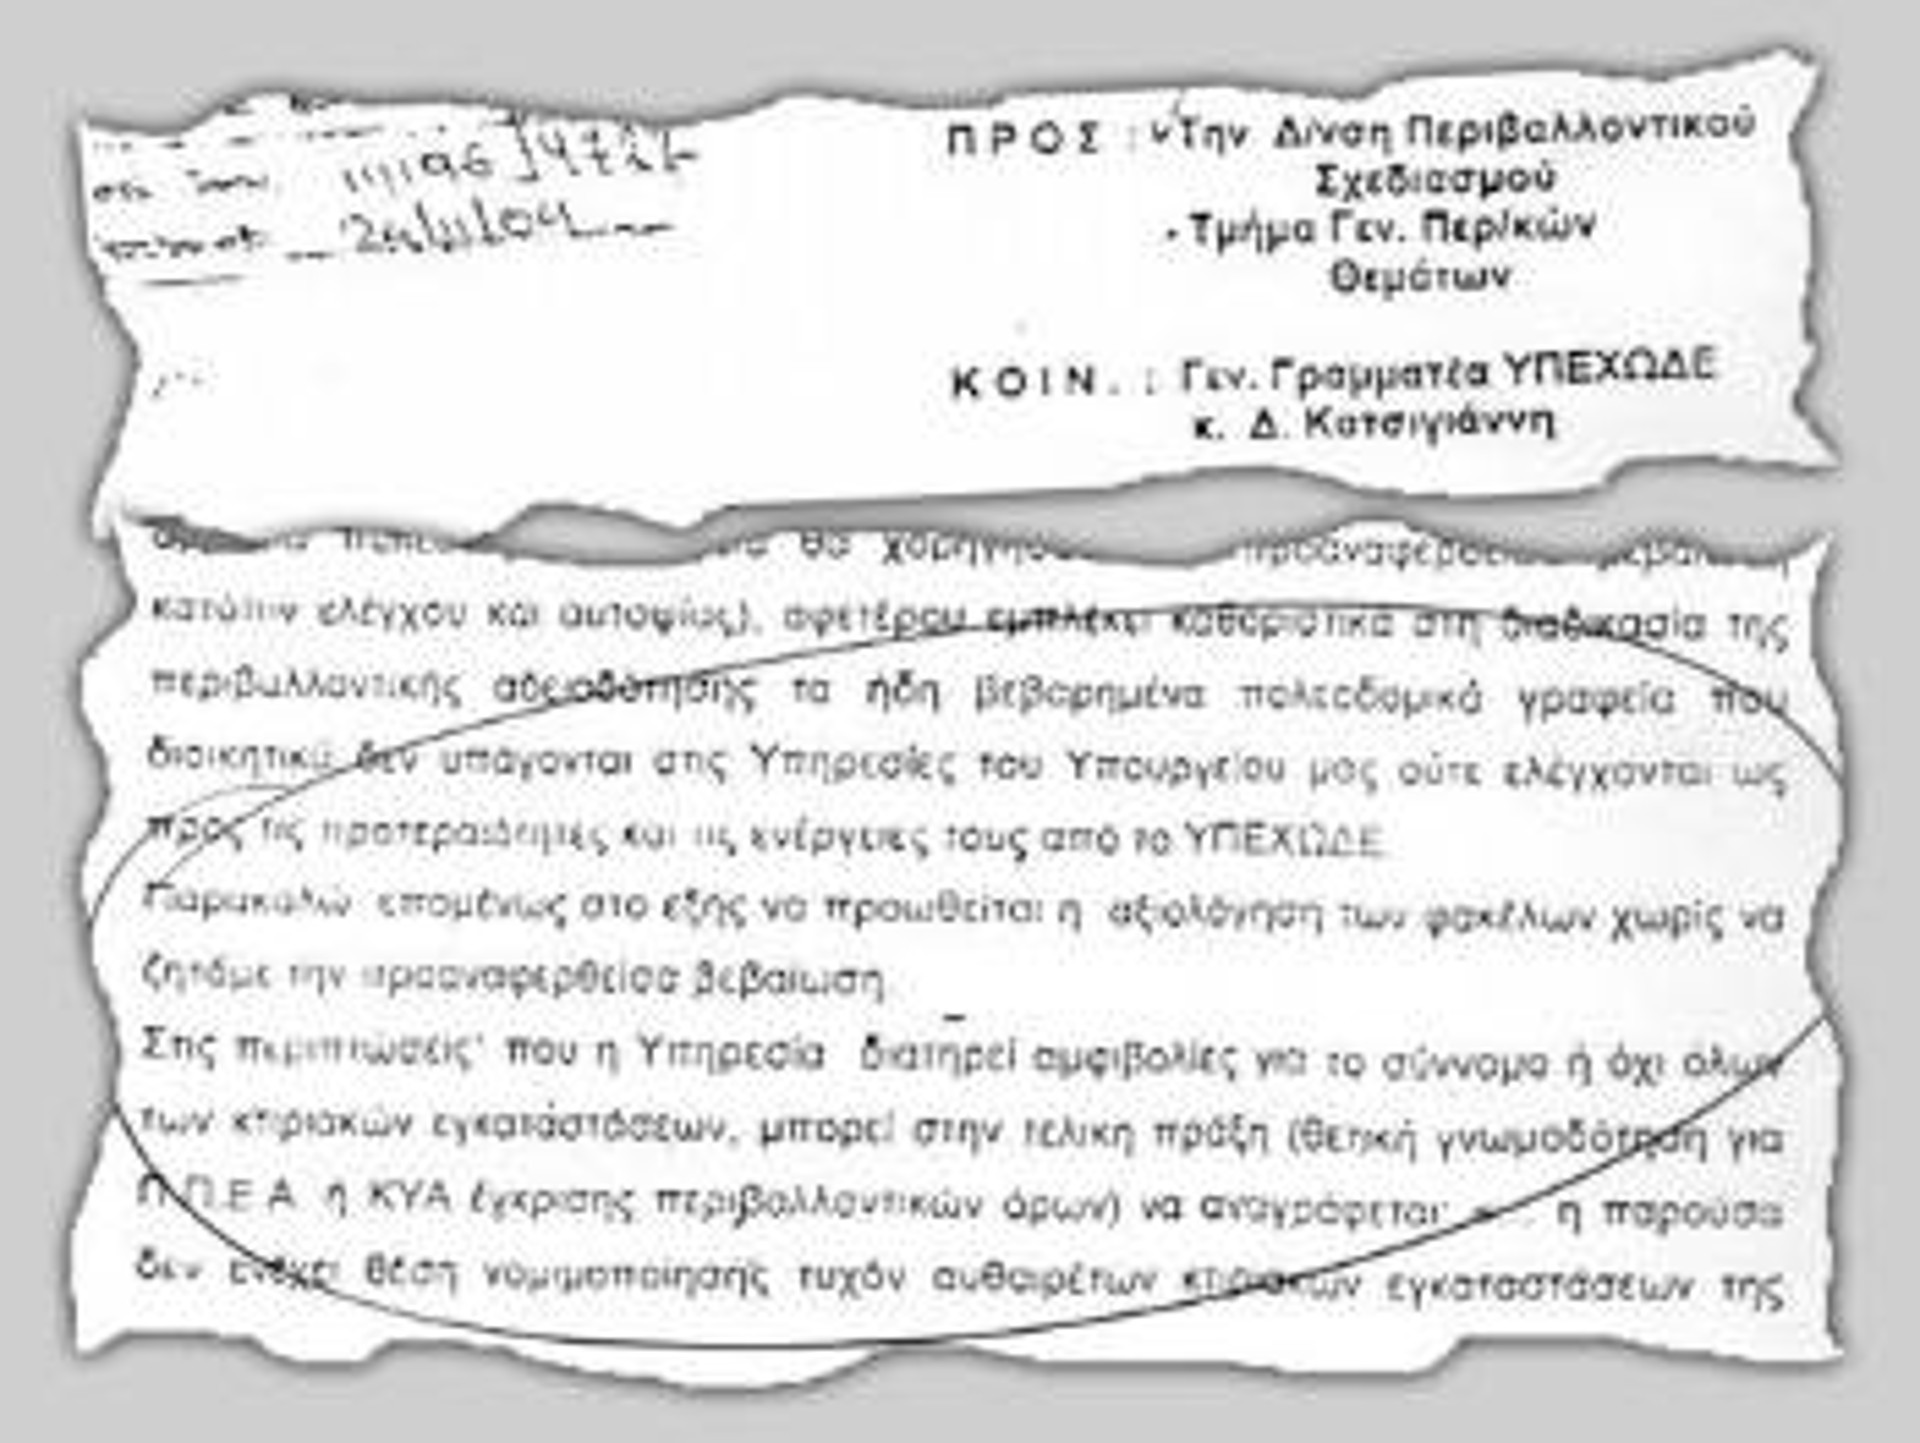 ΠΡΟΣ : Την Δ/νση Περιβαλλοντικού
Σχεδιασμού
- Τμήμα Γεν. Περ/κών
Θεμάτων
ΚΟΙΝ. : Γεν. Γραμματέα ΥΠΕΧΩΔΕ
κ. Δ. Κατσιγιάννη
θα
κατόπιν ελέγχου και αυτοψίας), αφετέρου εμπλέκει καθοριστικά στη διαδικασία της
περιβαλλοντικής αδειοδότησης τα ήδη βεβαρημένα πολεοδομικά γραφεία που
διοικητικά δεν υπάγονται στις Υπηρεσίες του Υπουργείου μας ούτε ελέγχονται ως
προς τις προτεραιότητες και τις ενέργειες τους από το ΥΠΕΧΩΔΕ
Παρακαλώ επομένως στο εξής να προωθείται η αξιολόγηση των φακέλων χωρίς να
ζητάμε την προαναφερθείσα βεβαίωση
Στις περιπτώσεις που η Υπηρεσία διατηρεί αμφιβολίες για το σύννομο ή όχι όλων
των κτιριακών εγκαταστάσεων, μπορεί στην τελική πράξη (θετική γνωμοδότηση για
Π.Π.Ε.Α. ή ΚΥΑ έγκρισης περιβαλλοντικών όρων) να αναγράφεται: η παρούσα
δεν ενέχει θέση νομιμοποίησης τυχόν αυθαιρέτων κτιριακών εγκαταστάσεων της